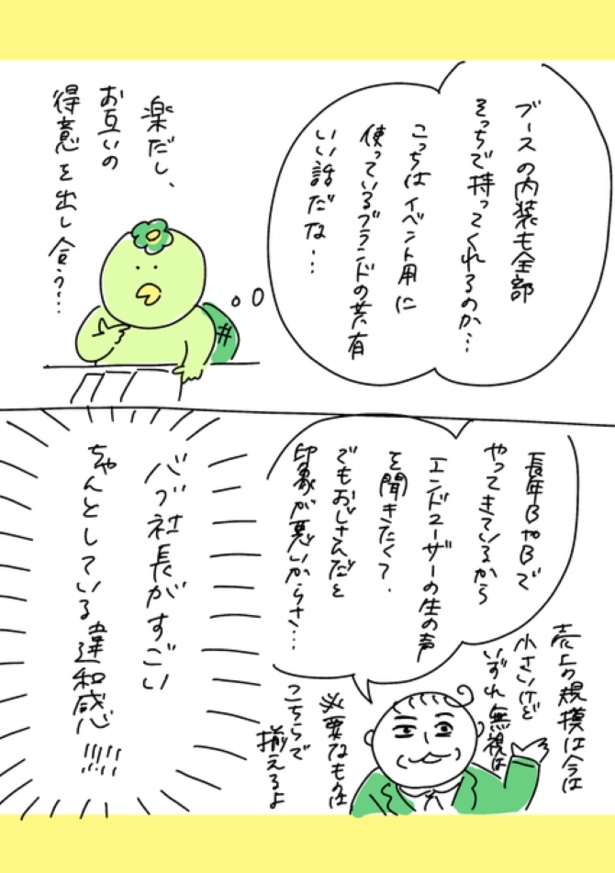 ブースの内装も全部
そっちで持ってくれるのか…
こっちはイベント用に
使っているブランドの共有
いい話だな…
楽だし、
お互いの
得意を出し合う…
長年BtoBで
やってきているから
エンドユーザーの生の声
を聞きたくて.
でもおじさんだと
印象が悪いからさ…
売上の規模は今は
小さいけど
いずれ無視は
必要なものは
こちらで
揃えるよ
バブ社長がすごい
ちゃんとしている違和感!!!!!